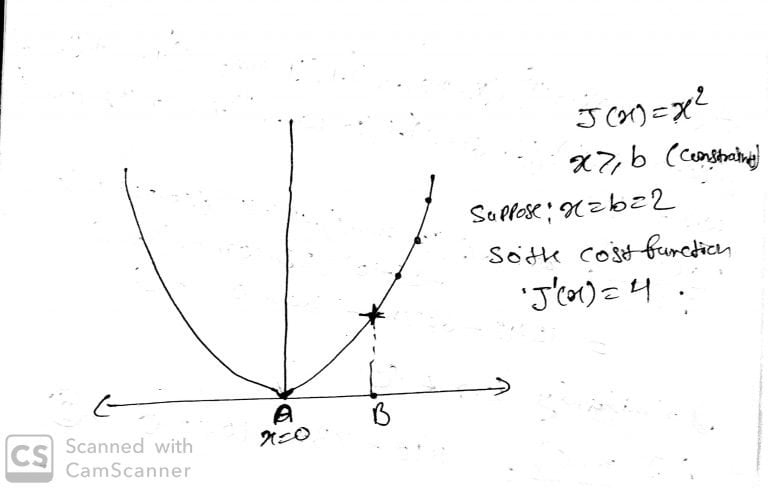 J(x) = x²
x ≥, b (constraint)
Suppose; x = b = 2
So the cost function
'J'(x) = 4 .
A
x=0
B
CS Scanned with
CamScanner